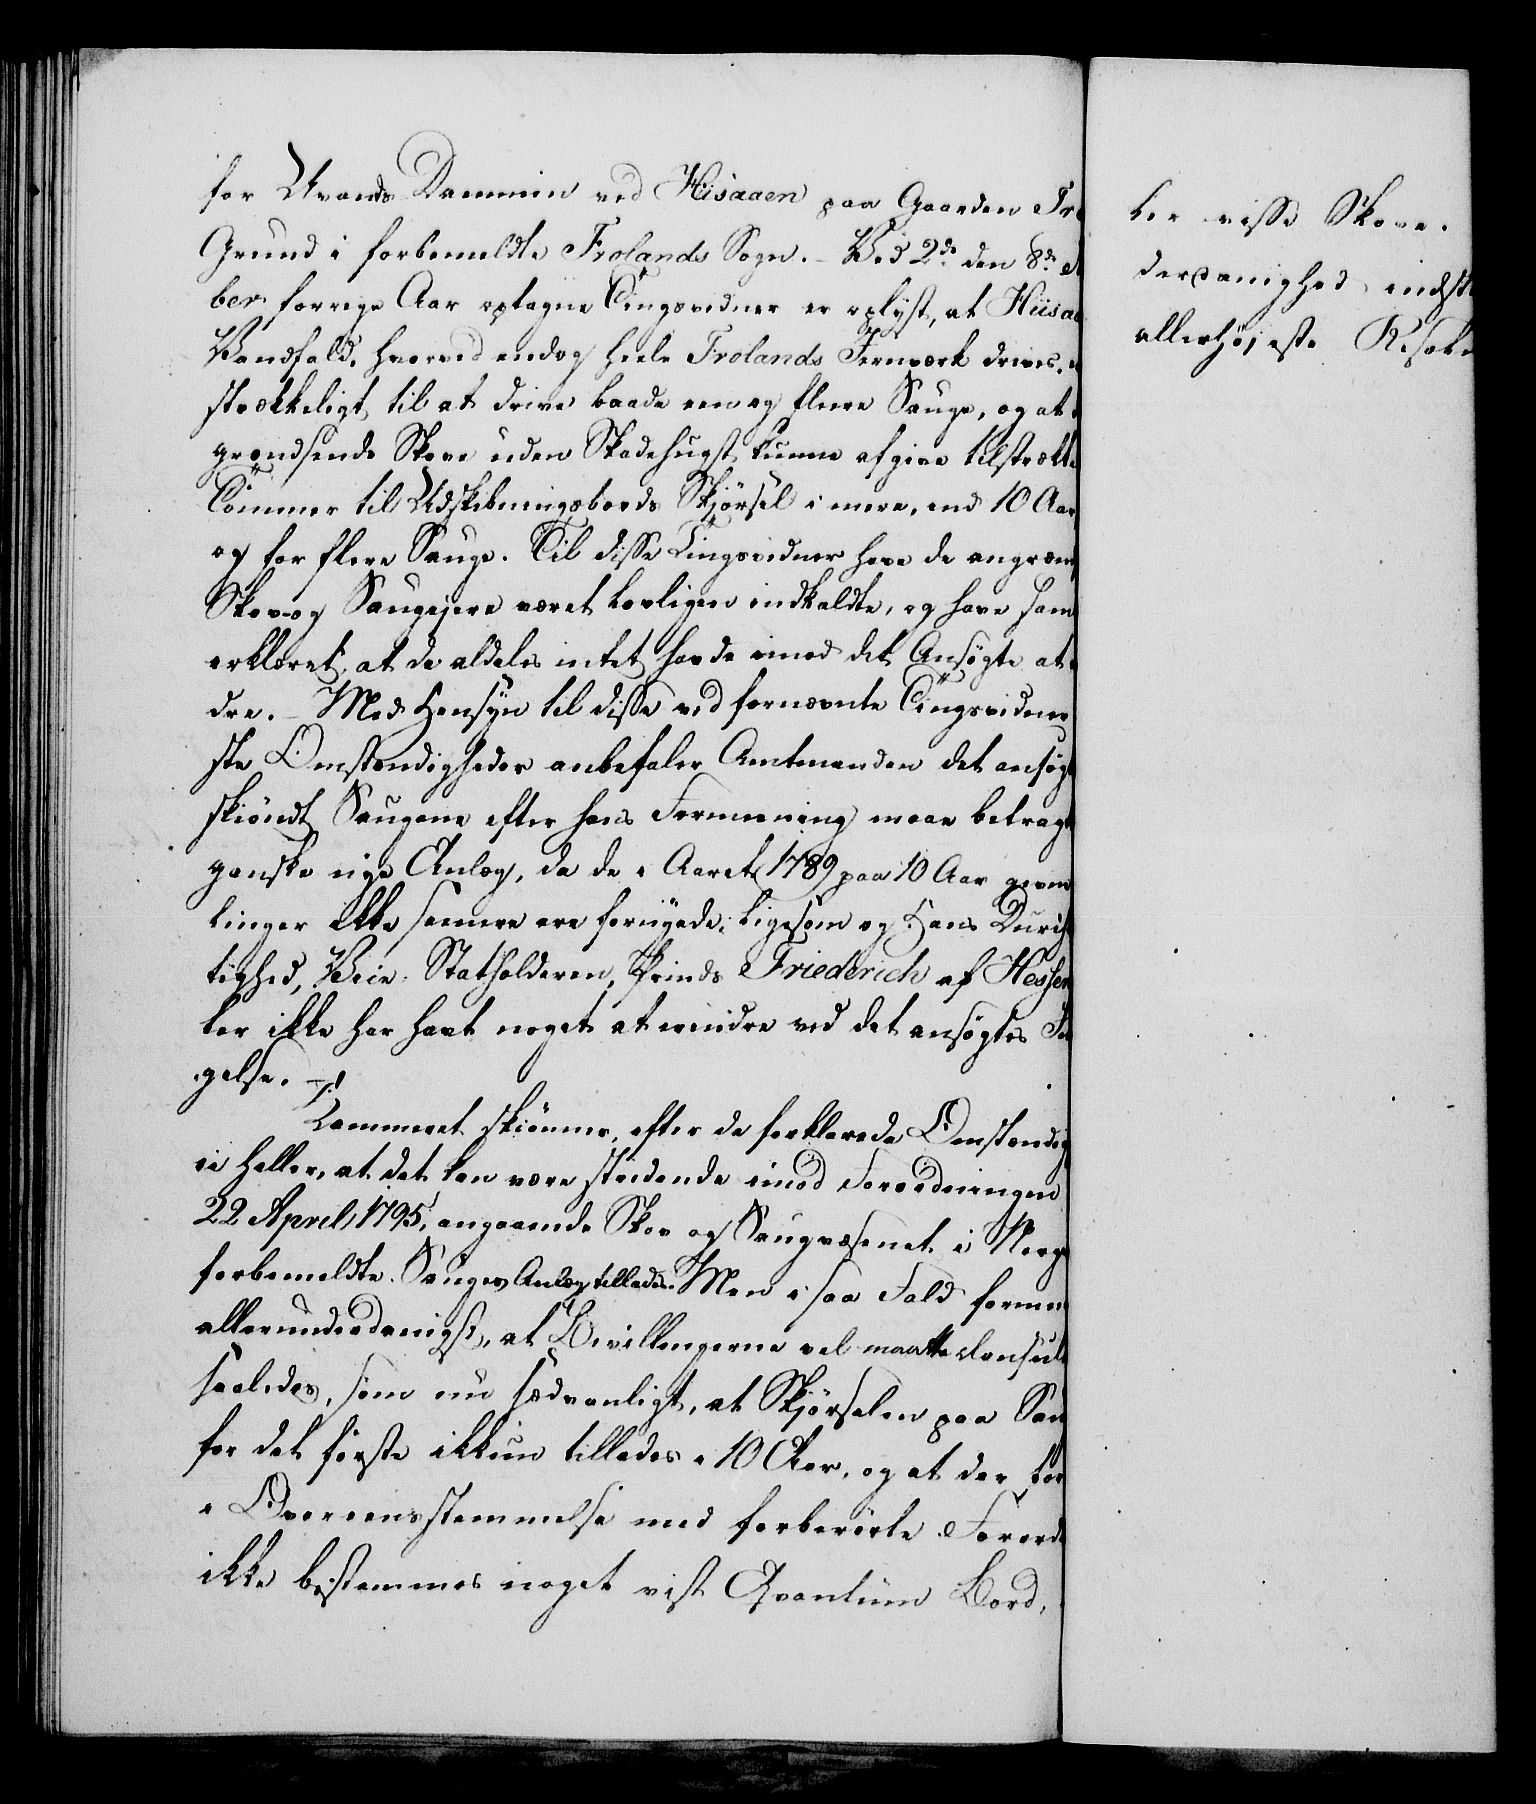 for Uvands Dammen ved Hisaaen paa Gaarden Tr
Grund i forbemeldte Frolands Sogn. – Ved 2de den 8de
ber forrige Aar optagne Tingsvidner er oplyst, at Hiisaa
Vandfald, hvorved endog heele Frolands Jernværk drives,
strækkeligt til at drive baade een og flere Sauge, og at
grændsende Skove uden Skadehugst kunne afgive tilstrække
Tömmer til Udskibningsbords Skjörsel i mere, end 10 Aar
og for flere Sauge. Til disse Tingsvidner have de angræn
Skov og Saugejere været lovligen indkaldte, og have sam
erklæret, at de aldeles intet havde imod det Ansögte at
dre. – Med Hensyn til disse ved fornævnte Tingsvidner
ste Omstændigheder anbefaler Amtmanden det ansøg
skiöndt Saugene efter hans Formening maae betragt
ganske nye Anlæg, da de i Aaret 1789 paa 10 Aar givne
linger ikke senere ere fornyede; ligesom og Hans Durch
tighed, Vice-Statholderen, Prinds Friederich af Hessen
ler ikke har havt noget at erindre ved det ansøgtes
gelse. –
Kammeret skiönner, efter de forklarede Omstændig
ei heller, at det kan være stridende imod Forordningen
22 April 1795, angaaende Skov og Saugvæsenet i Norge
forbemeldte Sauges Anlæg tillades. Men i saa Fald formen
allerunderdanigst, at Bevillingerne vel maatte clausule
saaledes, som nu sædvanligt, at Skjörselen paa Sau
for det förste ikkun tillades i 10 Aar, og at der
i Overeensstemmelse med forberörte Forord
ikke bestemmes noget vist Qvantum Bord,
ler visse Skove.
derdanighed indst
allerhöjeste Resolu